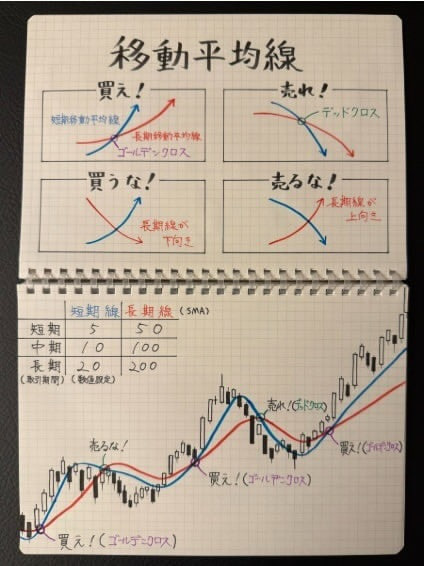 移動平均線
買え!
短期移動平均線
長期移動平均線
ゴールデンクロス
売れ!
デッドクロス
買うな!
長期線が
下向き
売るな!
長期線が
上向き
短期線 長期線 (SMA)
短期 5 50
中期 10 100
長期 20 200
(取引期間) (数値設定)
売れ!(デッドクロス)
売るな!
買え!(ゴールデンクロス)
買え!(ゴールデンクロス)
買え!(ゴールデンクロス)